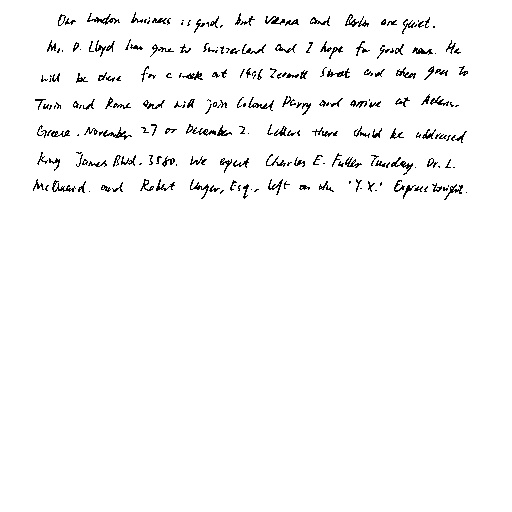 Our London business is good, but Vienna and Berlin are quiet.
Mr. D. Lloyd has gone to Switzerland and I hope for good news. He
will be there for a week at 1496 Zermott Street and then goes to
Turin and Rome and will join Colonel Parry and arrive at Athens,
Greece, November 27 or December 2. Letters there should be addressed
King James Blvd. 3580. We expect Charles E. Fuller Tuesday. Dr. L.
McQuaid and Robert Unger, Esq., left on the "Y.X." Express tonight.